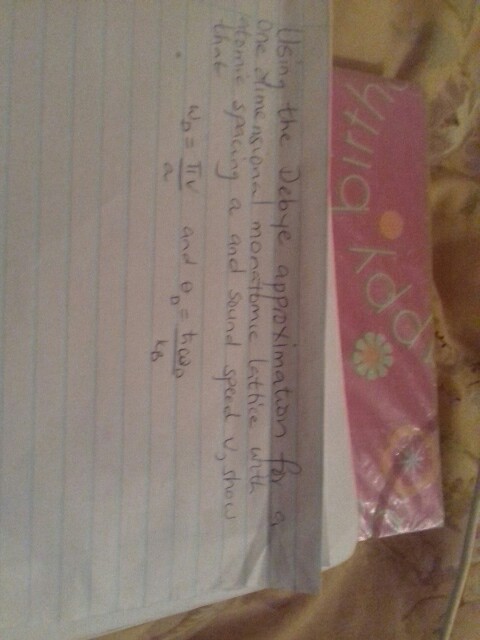 Using the Debye approximation for a
one dimensional monatomic lattice with
atomic spacing a and sound speed v, show
that
ω_D = πv/a and θ_D = ħω_D/k_B
ppy birth